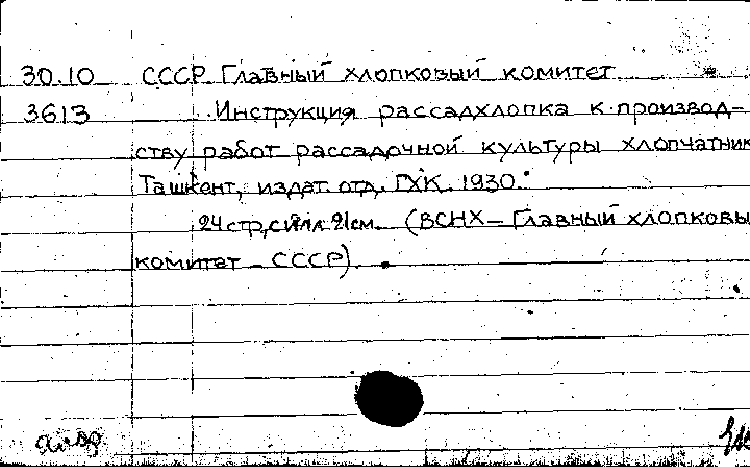 30.10 СССР Главный хлопковый комитет
3613 Инструкция рассадхлопка к производ-
ству работ рассадочной культуры хлопчатник
Ташкент, издат. отд. ГХК. 1930.
24 стр, с илл. 21 см. (ВСНХ – Главный хлопковы
комитет СССР).